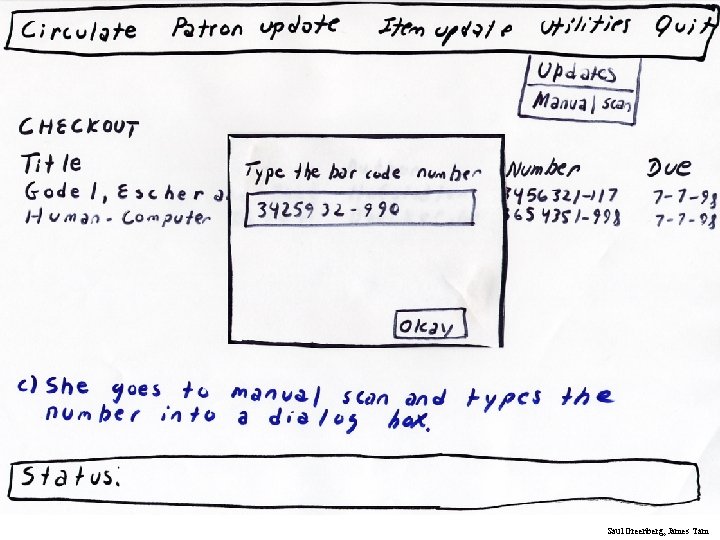 Circulate Patron update Item update Utilities Quit
Updates
Manual scan
CHECKOUT
Title Number Due
Godel, Escher a 3456321-117 7-7-98
Human-Computer 3654351-998 7-7-98
Type the bar code number
3425932-990
Okay
c) She goes to manual scan and types the
number into a dialog box.
Status:
Saul Greenberg, James Tam